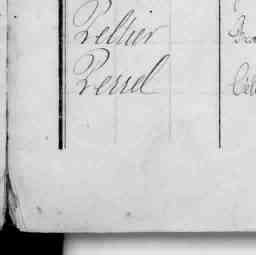 Pellier
Perrel